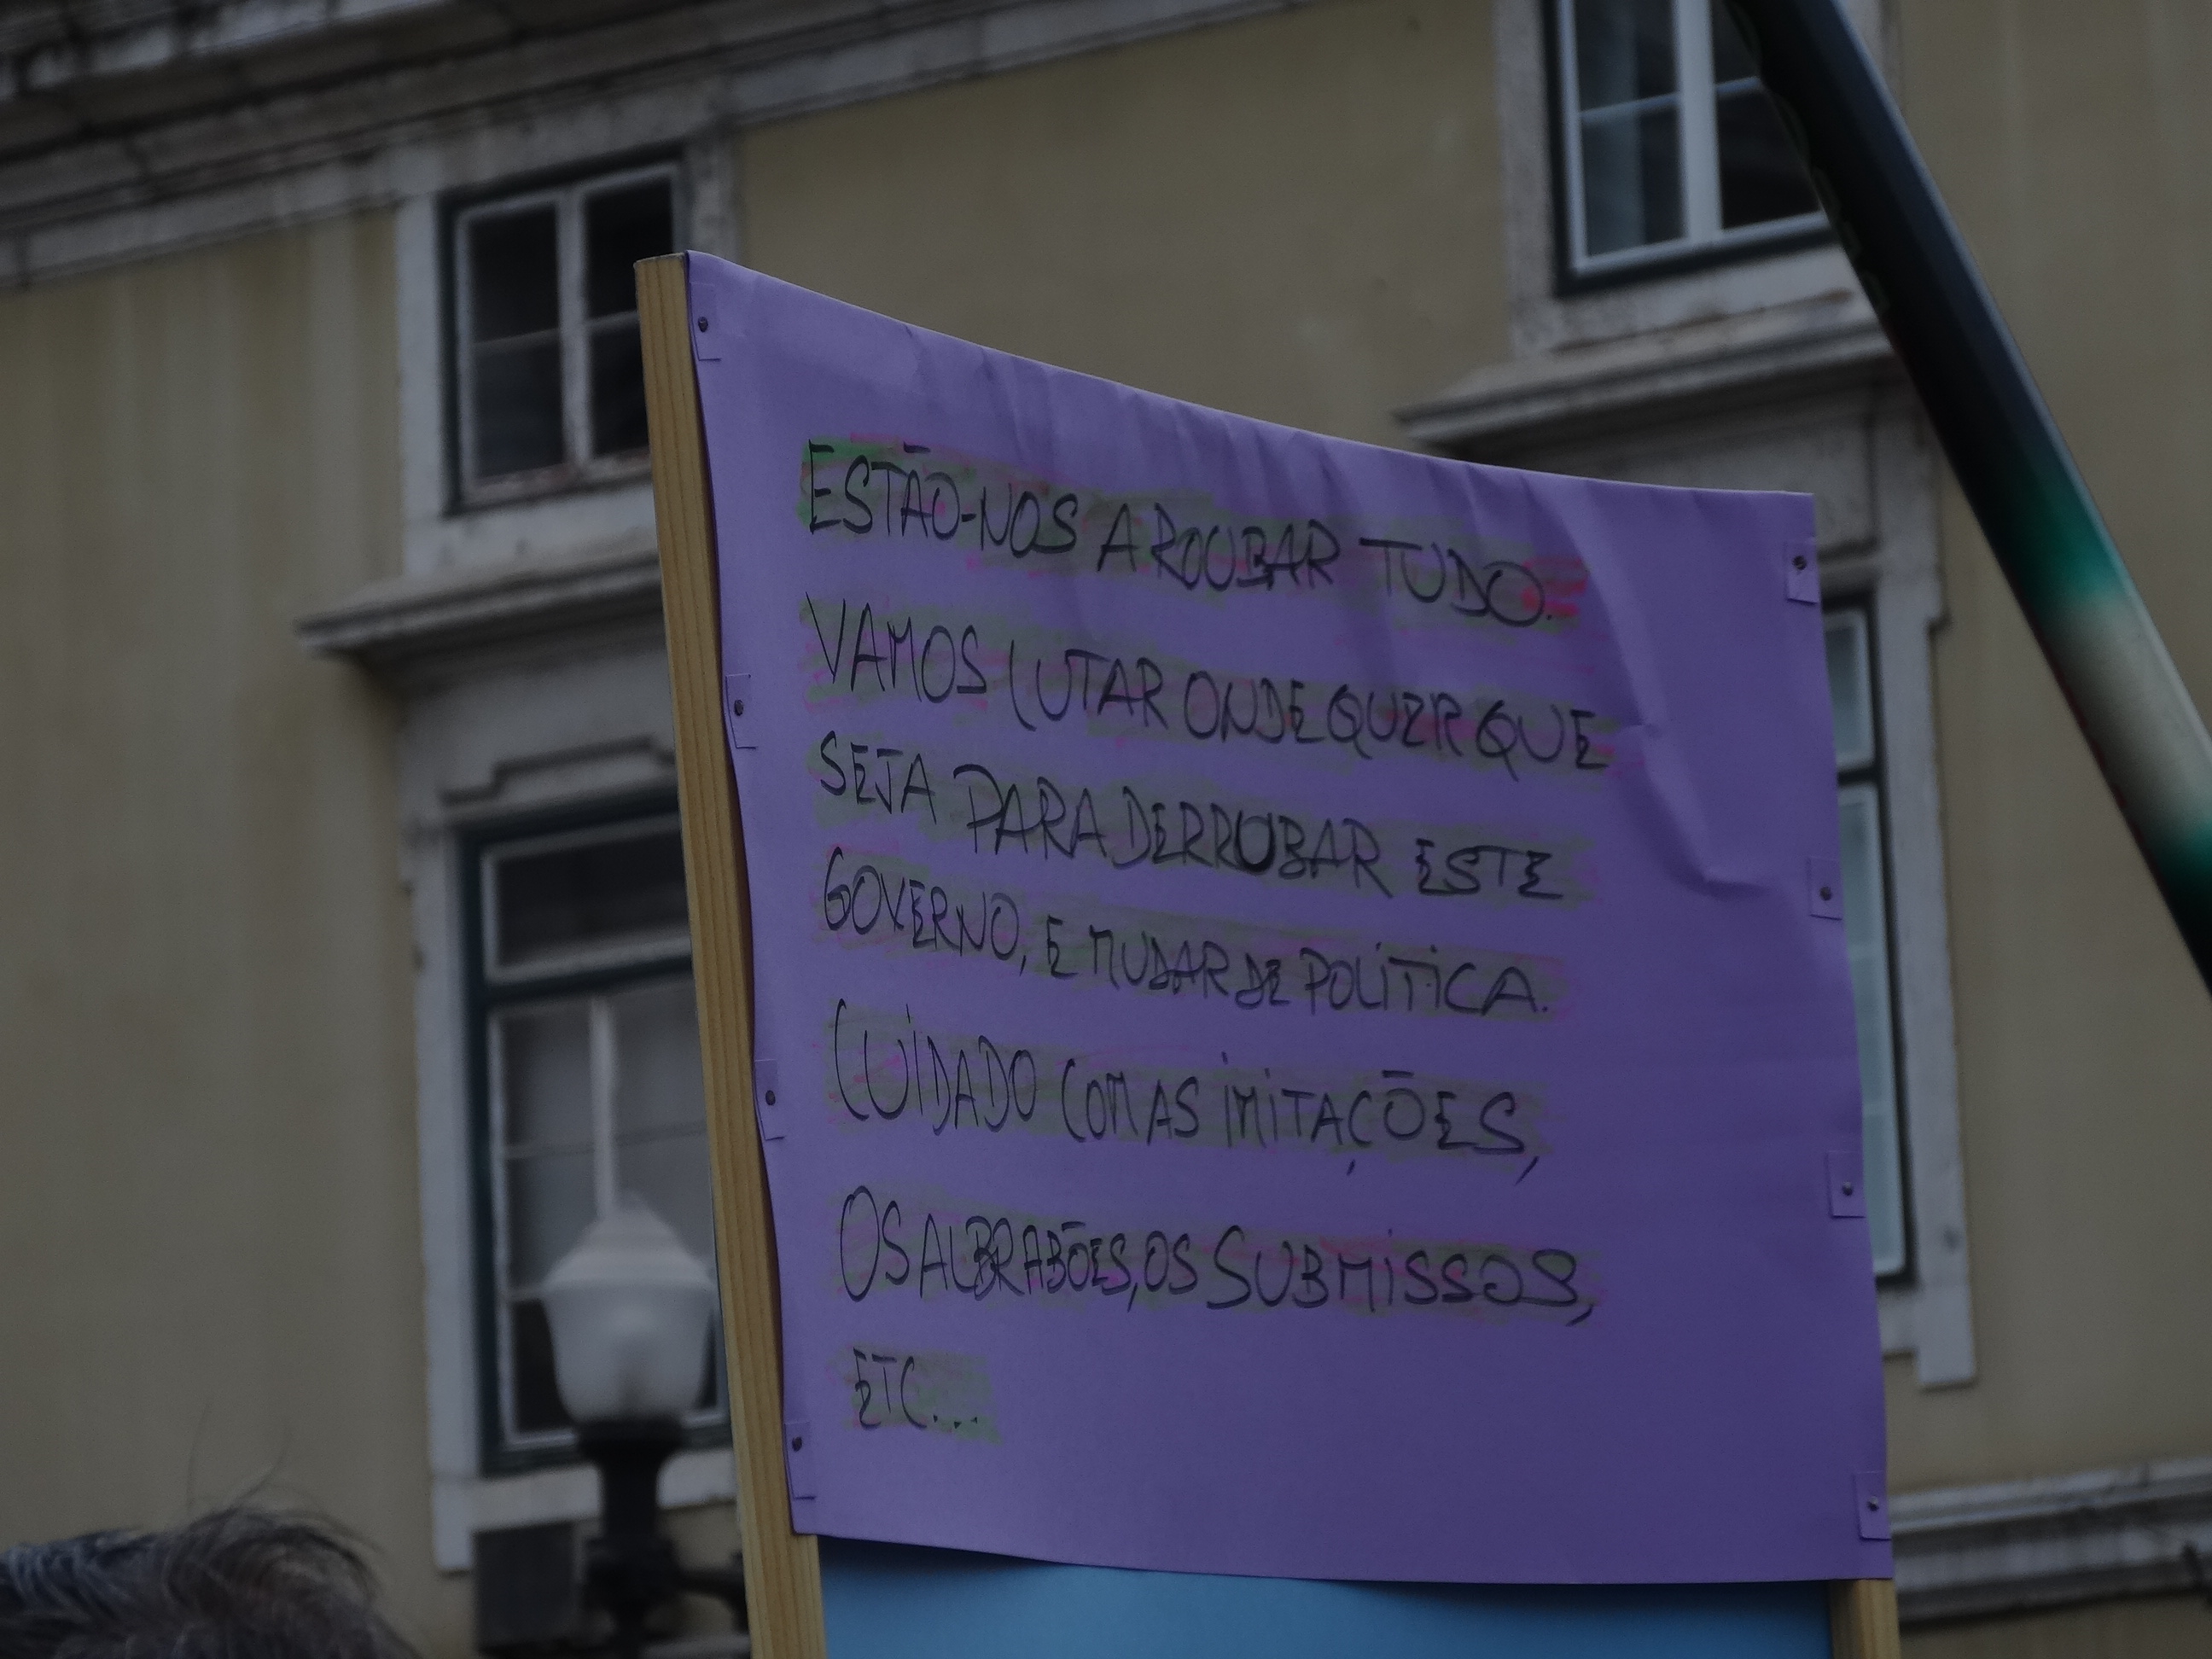 ESTÃO-NOS A ROUBAR TUDO.
VAMOS LUTAR ONDE QUER QUE
SEJA PARA DERRUBAR ESTE
GOVERNO, E MUDAR DE POLÍTICA.
CUIDADO COM AS IMITAÇÕES,
OS ALBRABÕES, OS SUBMISSOS,
ETC...